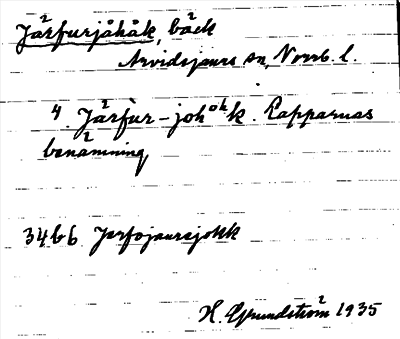 Järfurjåhåk, bäck
Arvidsjaurs sn, Norrb. l.
4. Järfùr-johºkk. Lapparnas
benämning
34 b 6 Jerfojaursjokk
H. Grundström 1935